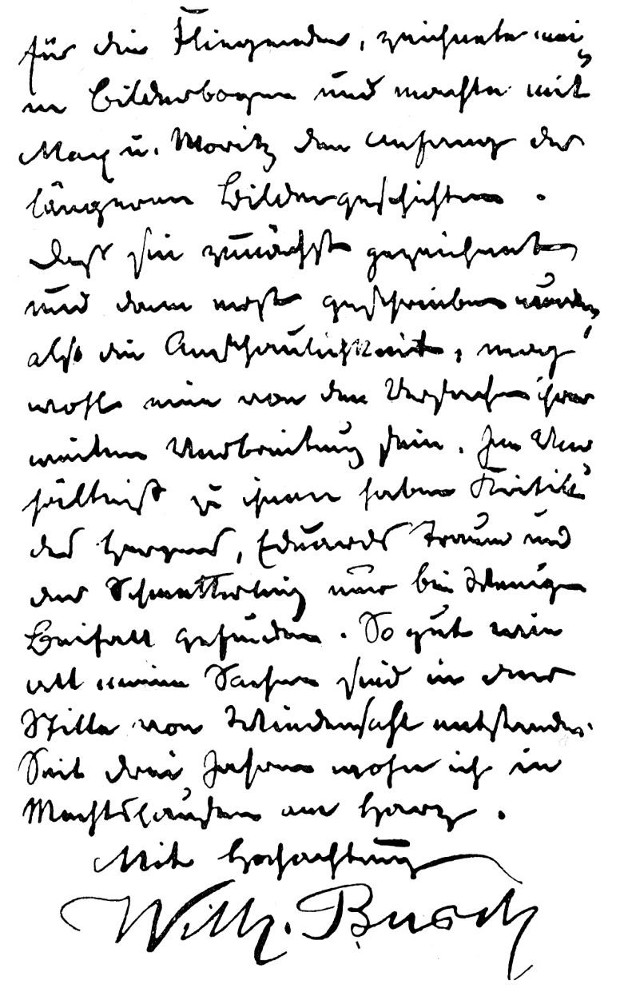 für die Fliegenden, zeichnete mei
ne Bilderbogen und machte mit
Max u. Moritz den Anfang der
längeren Bildergeschichten.
Daß sie zunächst gezeichnet
und dann erst geschrieben wurden,
also die Anschaulichkeit, mag
wohl eine von den Ursachen ihrer
weiten Verbreitung sein. Im Ver
hältniß zu ihnen haben Kritik
des Herzens, Eduards Traum und
der Schmetterling nur bei Wenigen
Beifall gefunden. So gut wie
all meine Sachen sind in der
Stille von Wiedensahl entstanden.
Seit drei Jahren wohn ich in
Mechtshausen am Harz.
Mit Hochachtung
Wilh. Busch